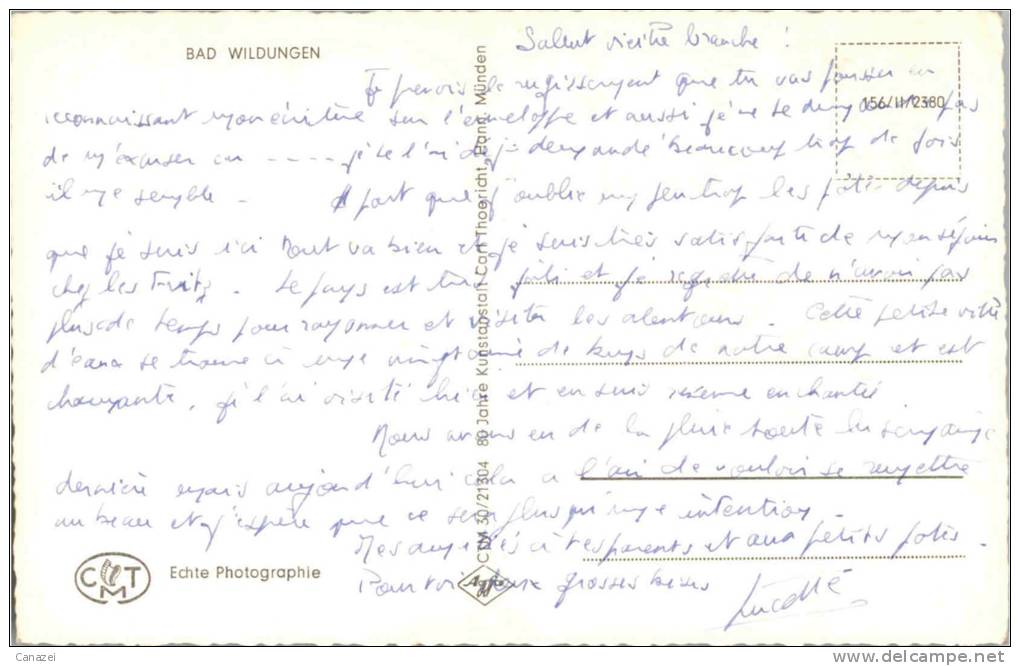 BAD WILDUNGEN
Salut vieille branche !
Je prévois le rugissement que tu vas pousser en
reconnaissant mon écriture sur l'enveloppe et aussi je ne te demande pas
de m'excuser car ---- je te l'ai déjà demandé beaucoup trop de fois
il me semble -
A part que j'oublie un peu trop les potes depuis
que je suis ici tout va bien et je suis très satisfaite de mon séjour
chez les Fritz. Le pays est très joli et je regrette de n'avoir pas
plus de temps pour rayonner et visiter les alentours. Cette petite ville
d'eaux se trouve à une vingtaine de kms de notre camp et est
charmante, je l'ai visité hier et en suis revenue enchantée
Nous avons eu de la pluie toute la semaine
dernière mais aujourd'hui cela a l'air de vouloir se remettre
au beau et j'espère que ce sera plus qu'une intention.
Mes amitiés à tes parents et aux petits potes.
Pour toi deux grosses bises
Lucette
156/II/2380
CTM 30/21304 80 Jahre Kunstanstalt Carl Thoericht, Hann. Münden
CTM
Echte Photographie
Agfa
Canazei
www.delcampe.net